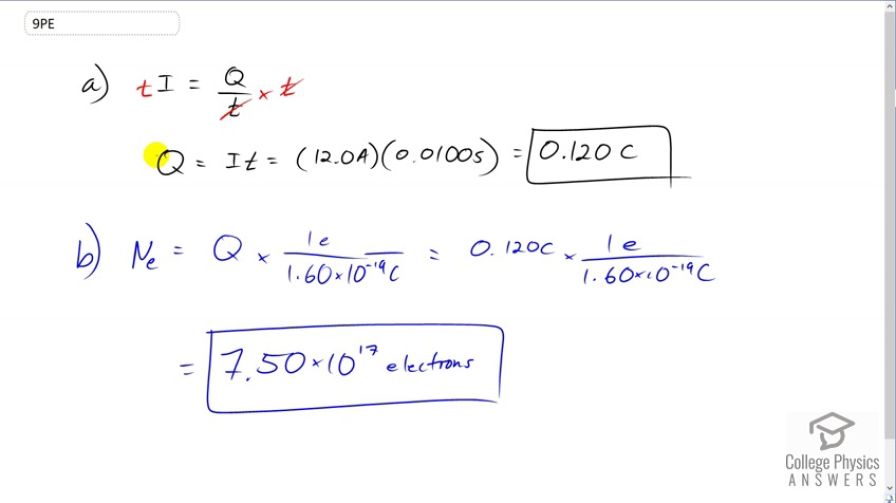 9PE
a) tI = Q/t × t
Q = It = (12.0A)(0.0100s) = 0.120 C
b) Ne = Q × 1e/1.60×10⁻¹⁹C = 0.120C × 1e/1.60×10⁻¹⁹C
= 7.50×10¹⁷ electrons
College Physics
ANSWERS